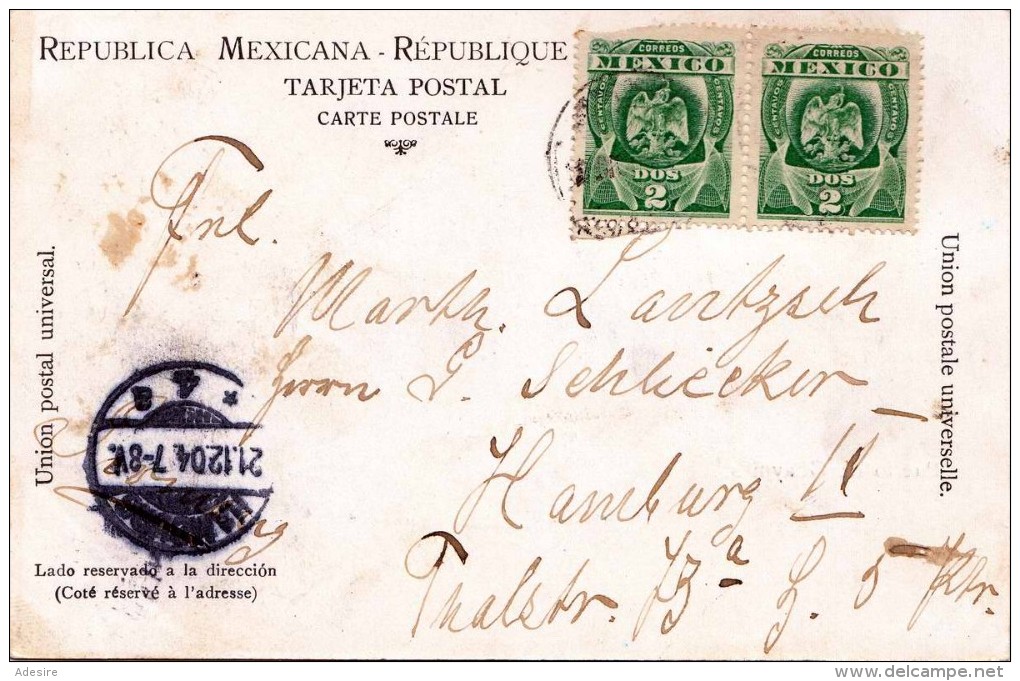 REPUBLICA MEXICANA - RÉPUBLIQUE
TARJETA POSTAL
CARTE POSTALE
CORREOS
MEXICO
CENTAVOS
CENTAVOS
DOS
2
CORREOS
MEXICO
CENTAVOS
CENTAVOS
DOS
2
Frl.
Marth. Lantzsch
Herrn P. Schliecker
Hamburg
Thalstr 73a
Union postal universal.
Union postale universelle.
* 4 a
21.12.04.7-8V.
Lado reservado a la dirección
(Coté réservé à l'adresse)
Adesire
www.delcampe.net